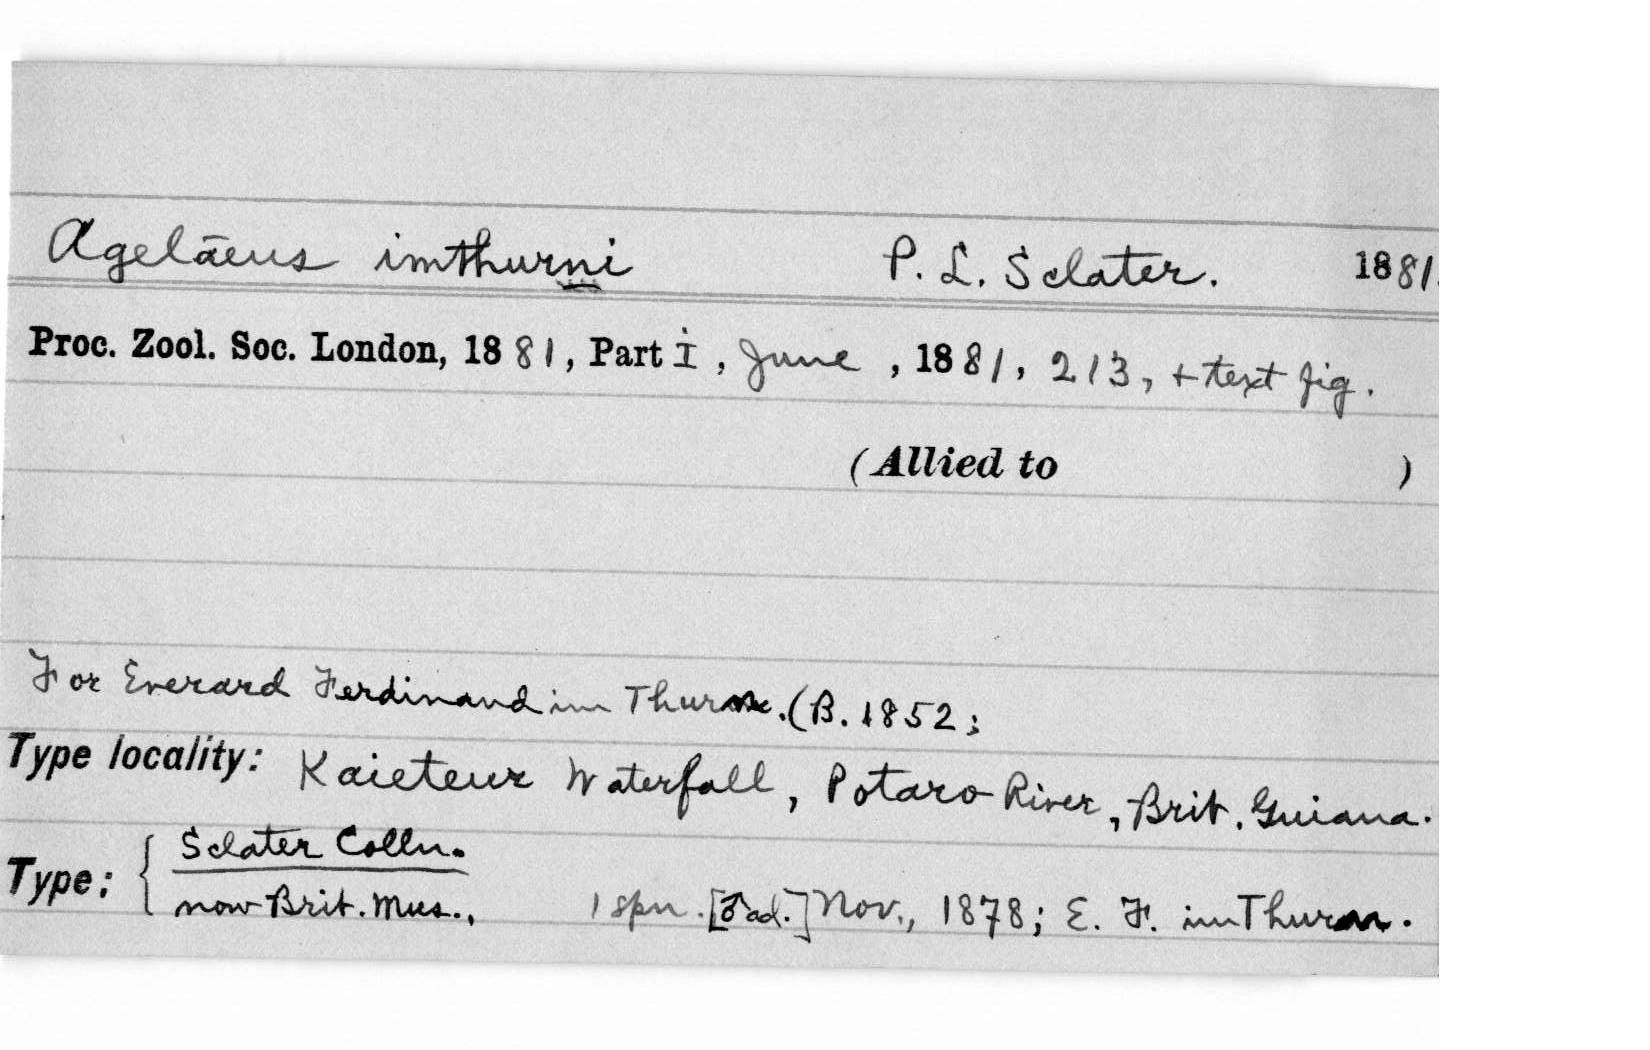 Agelāeus imthurni P. L. Sclater. 1881.
Proc. Zool. Soc. London, 1881, Part I, June, 1881, 213, + text fig.
(Allied to )
For Everard Ferdinand im Thurn. (B. 1852;
Type locality: Kaieteur Waterfall, Potaro River, Brit. Guiana.
Type: { Sclater Colln.
now Brit. Mus., 1 spn. [♂ ad.] Nov., 1878; E. F. im Thurn.